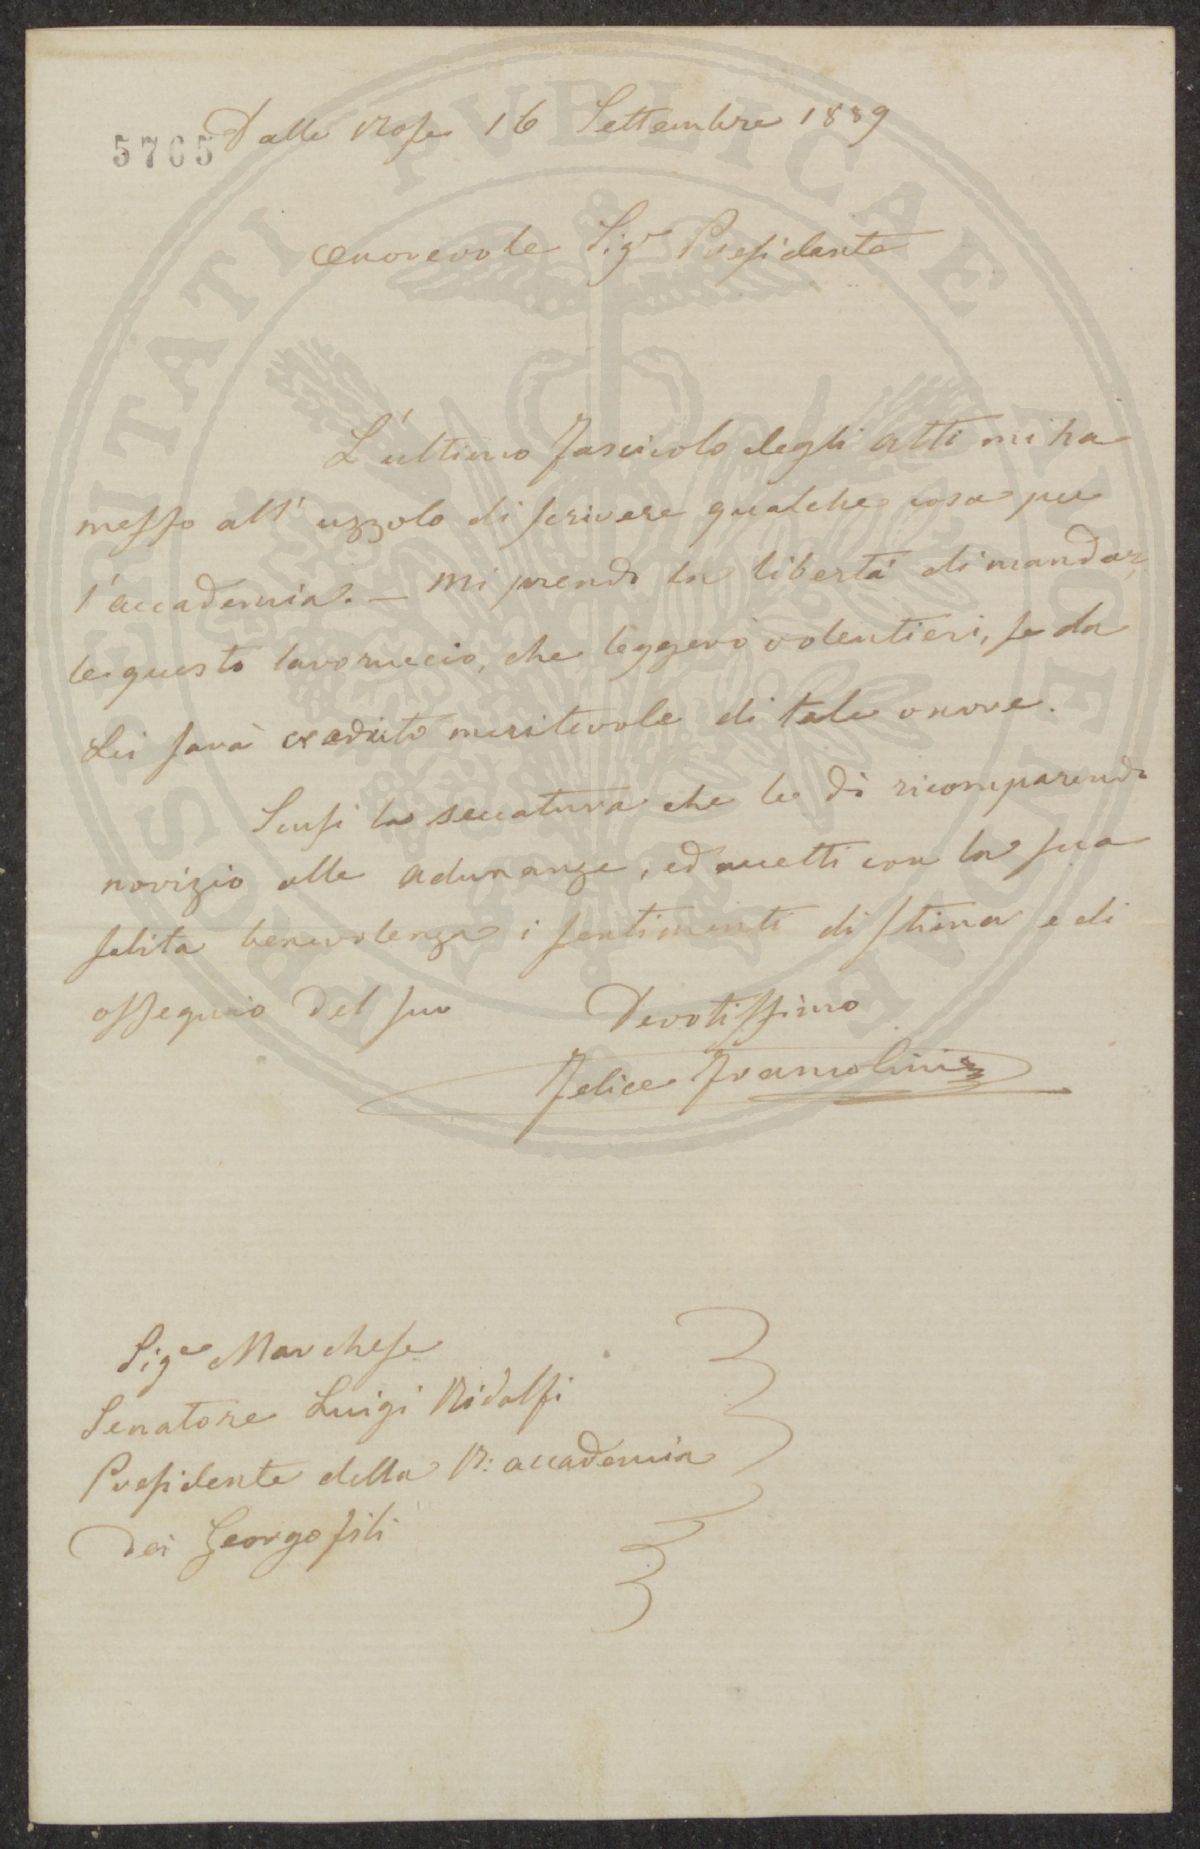 5765
Dalle Rose 16 Settembre 1889
Onorevole Sigr Presidente
L'ultimo fascicolo degli atti mi ha
messo all'uzzolo di scrivere qualche cosa per
l'accademia. — Mi prendo la libertà di mandar,
le questo lavoruccio, che leggerò volentieri, se da
Lei sarà creduto meritevole di tale onore.
Scusi la seccatura che le dò ricomparendo
novizio alle adunanze, ed accetti con la sua
solita benevolenza i sentimenti di stima e di
ossequio del suo Devotissimo
Felice Francolini
Sigre Marchese
Senatore Luigi Ridolfi
Presidente della R: accademia
dei Georgofili
PROSPERITATI PVBLICAE AVGENDAE